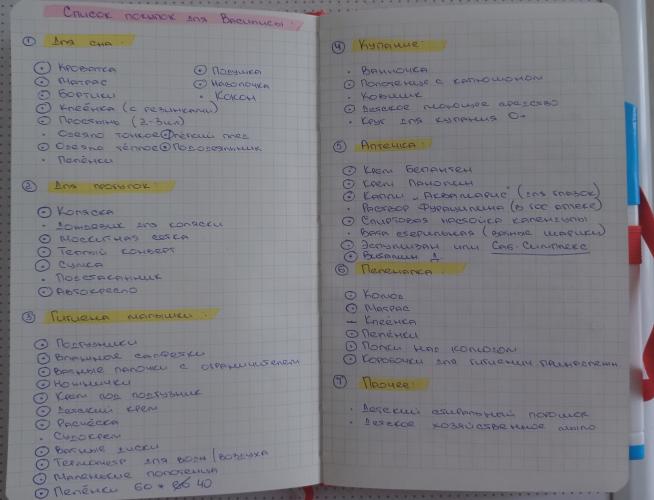 Список покупок для Василисы:
① Для сна:
Кроватка
Матрас
Бортики
Клеёнка (с резинками)
Простынь (2-3шт)
Одеяло тонкое/лёгкий плед
Одеяло тёплое
Пелёнки
Подушка
Наволочка
Кокон
Пододеяльник
② Для прогулок:
Коляска
Дождевик для коляски
Москитная сетка
Теплый конверт
Сумка
Подстаканник
Автокресло
③ Гигиена малышки:
Подгузники
Влажные салфетки
Ватные палочки с ограничителем
Ножнички
Крем под подгузник
Детский крем
Расчёска
Судокрем
Ватные диски
Термометр для воды/воздуха
Маленькие полотенца
Пелёнки 60 * 40
④ Купание:
Ванночка
Полотенце с капюшоном
Ковшик
Детское моющее средство
Круг для купания 0+
⑤ Аптечка:
Крем Бепантен
Крем
Капли "Аквамарис" (для глазок)
Раствор Фурацилина (в гос аптеке)
Спиртовая настойка календулы
Вата стерильная (ватные шарики)
Эспумизан или Саб-Симплекс
Витамин Д
⑥ Пеленалка
Комод
Матрас
— Клеёнка
Пелёнки
Полки над комодом
Коробочки для гигиенич. принадлежн
⑦ Прочее:
Детский стиральный порошок
Детское хозяйственное мыло